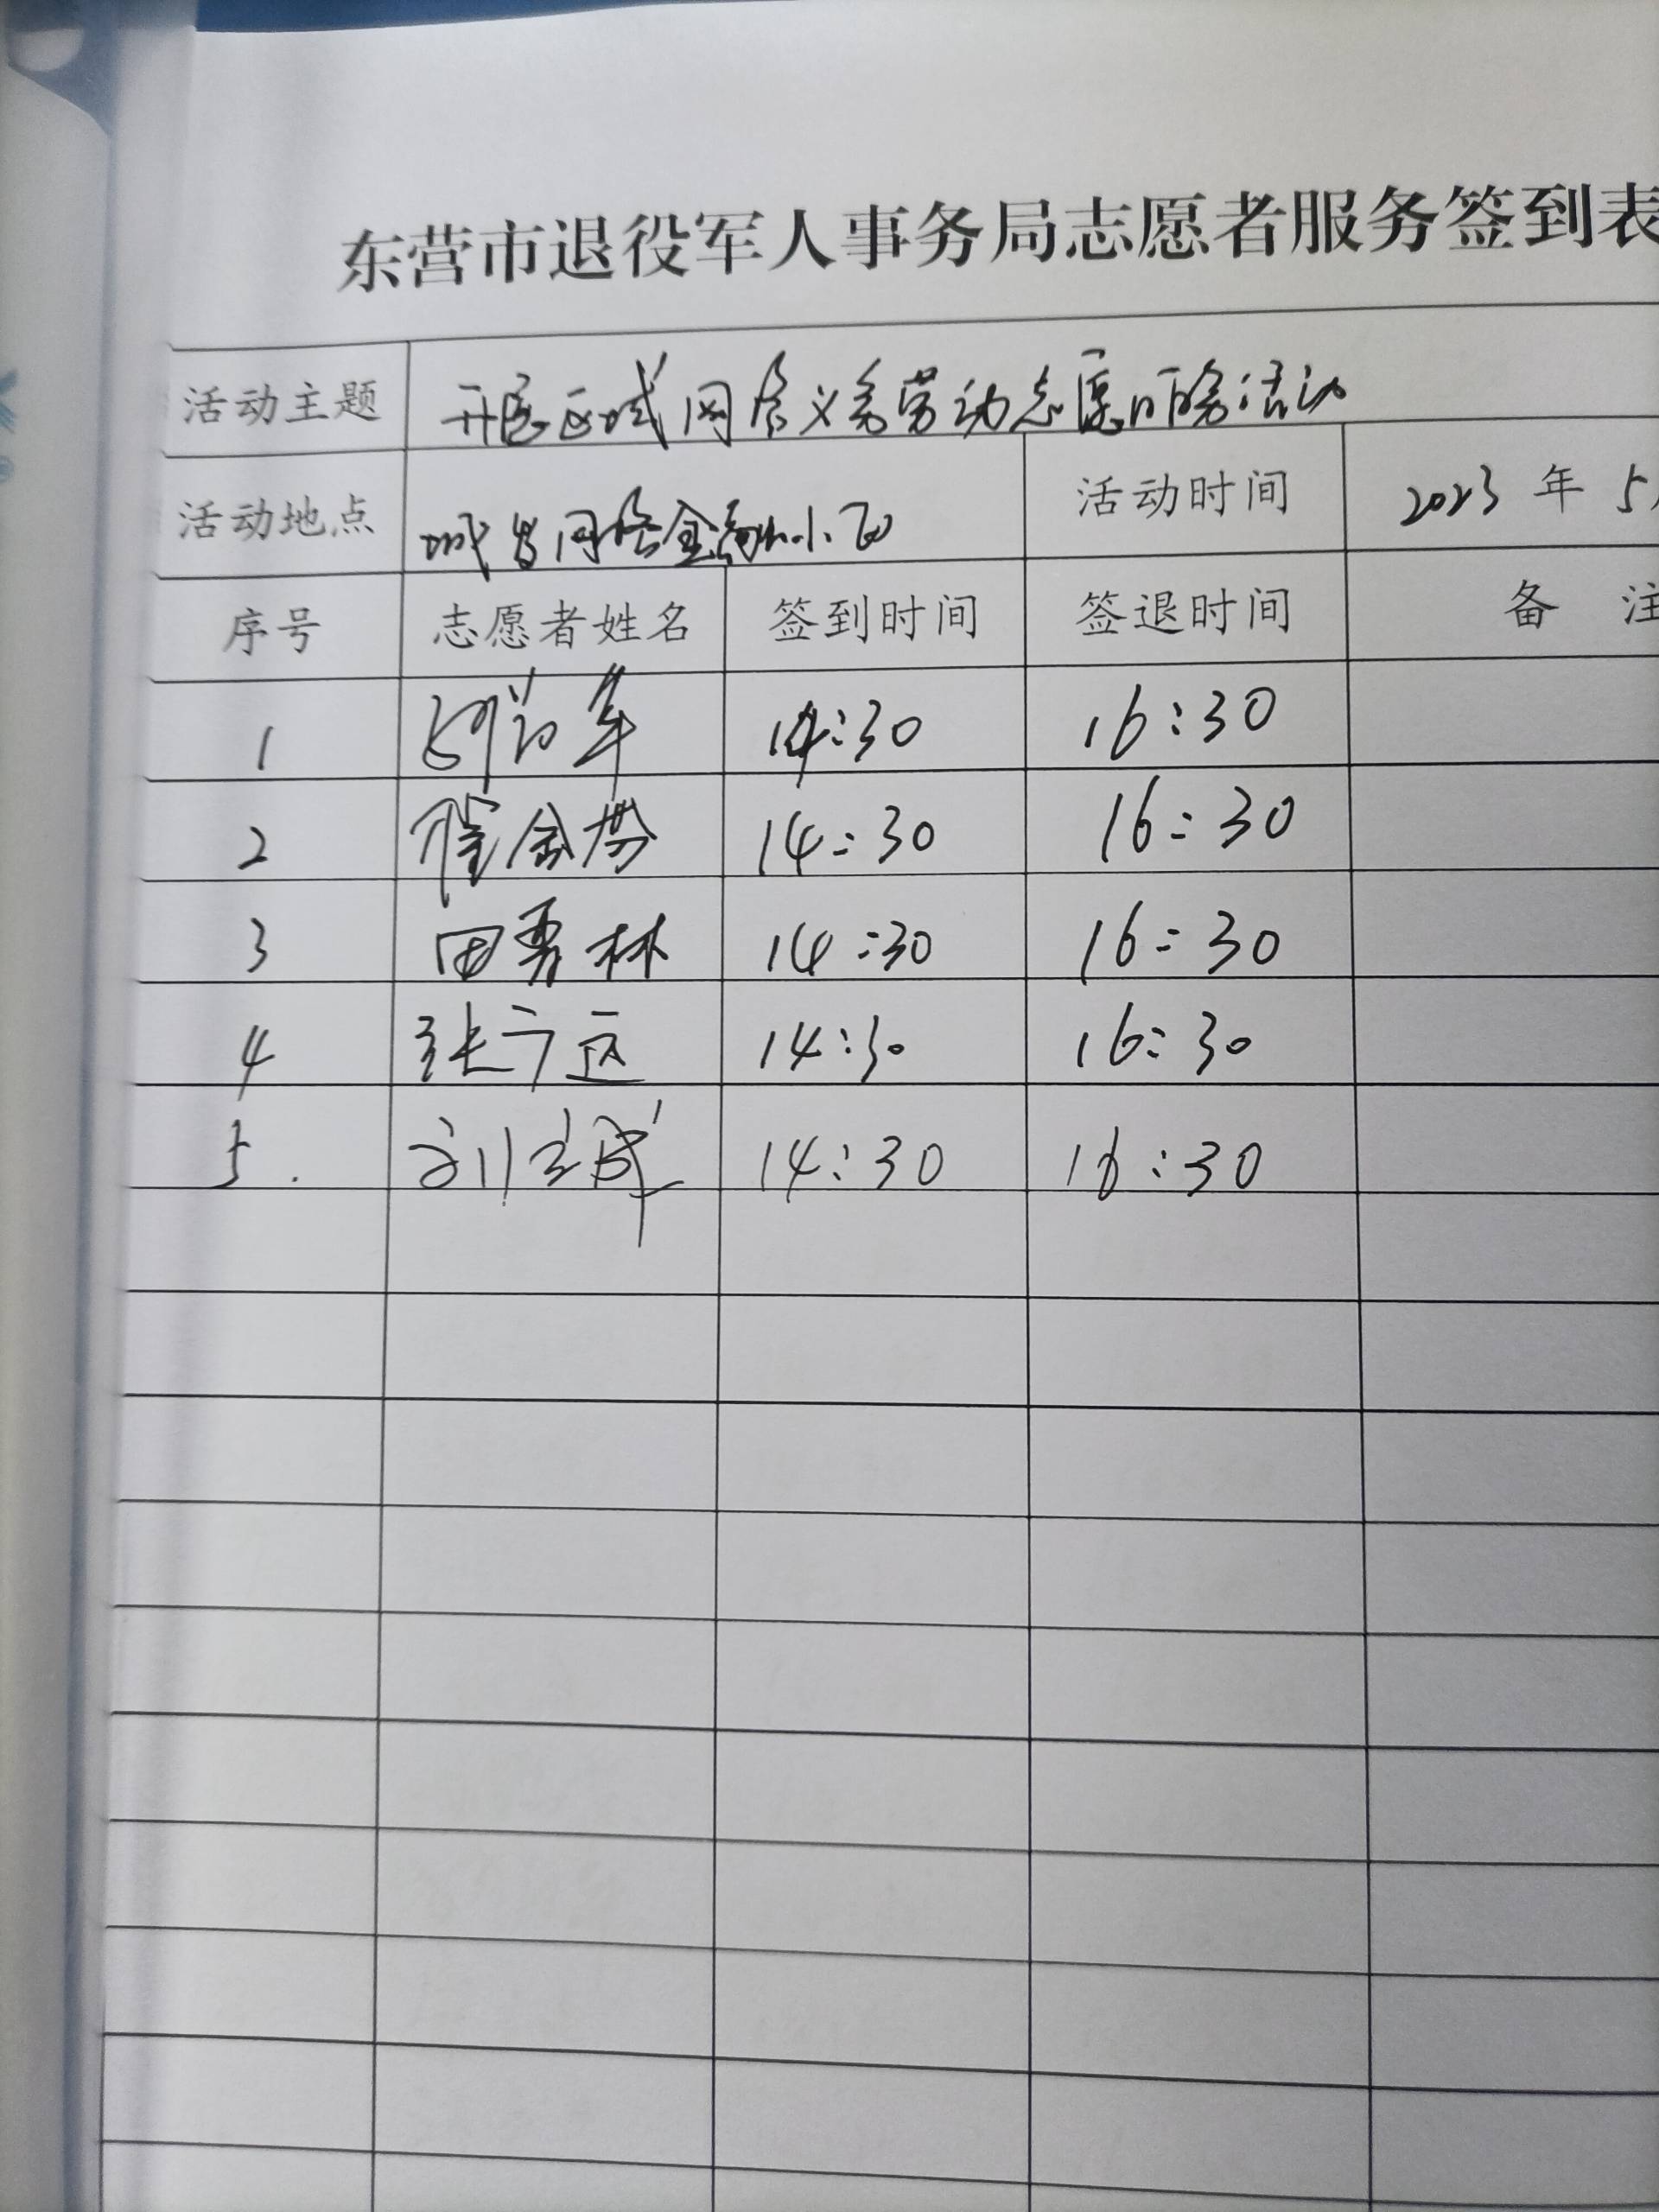 东营市退役军人事务局志愿者服务签到表
活动主题 开展区域网格义务劳动志愿服务活动
活动地点 网格金 小区 活动时间 2023 年 5
序号 志愿者姓名 签到时间 签退时间 备 注
1 14:30 16:30
2 崔金 14:30 16:30
3 田秀林 14:30 16:30
4 张广运 14:30 16:30
5. 刘 14:30 16:30